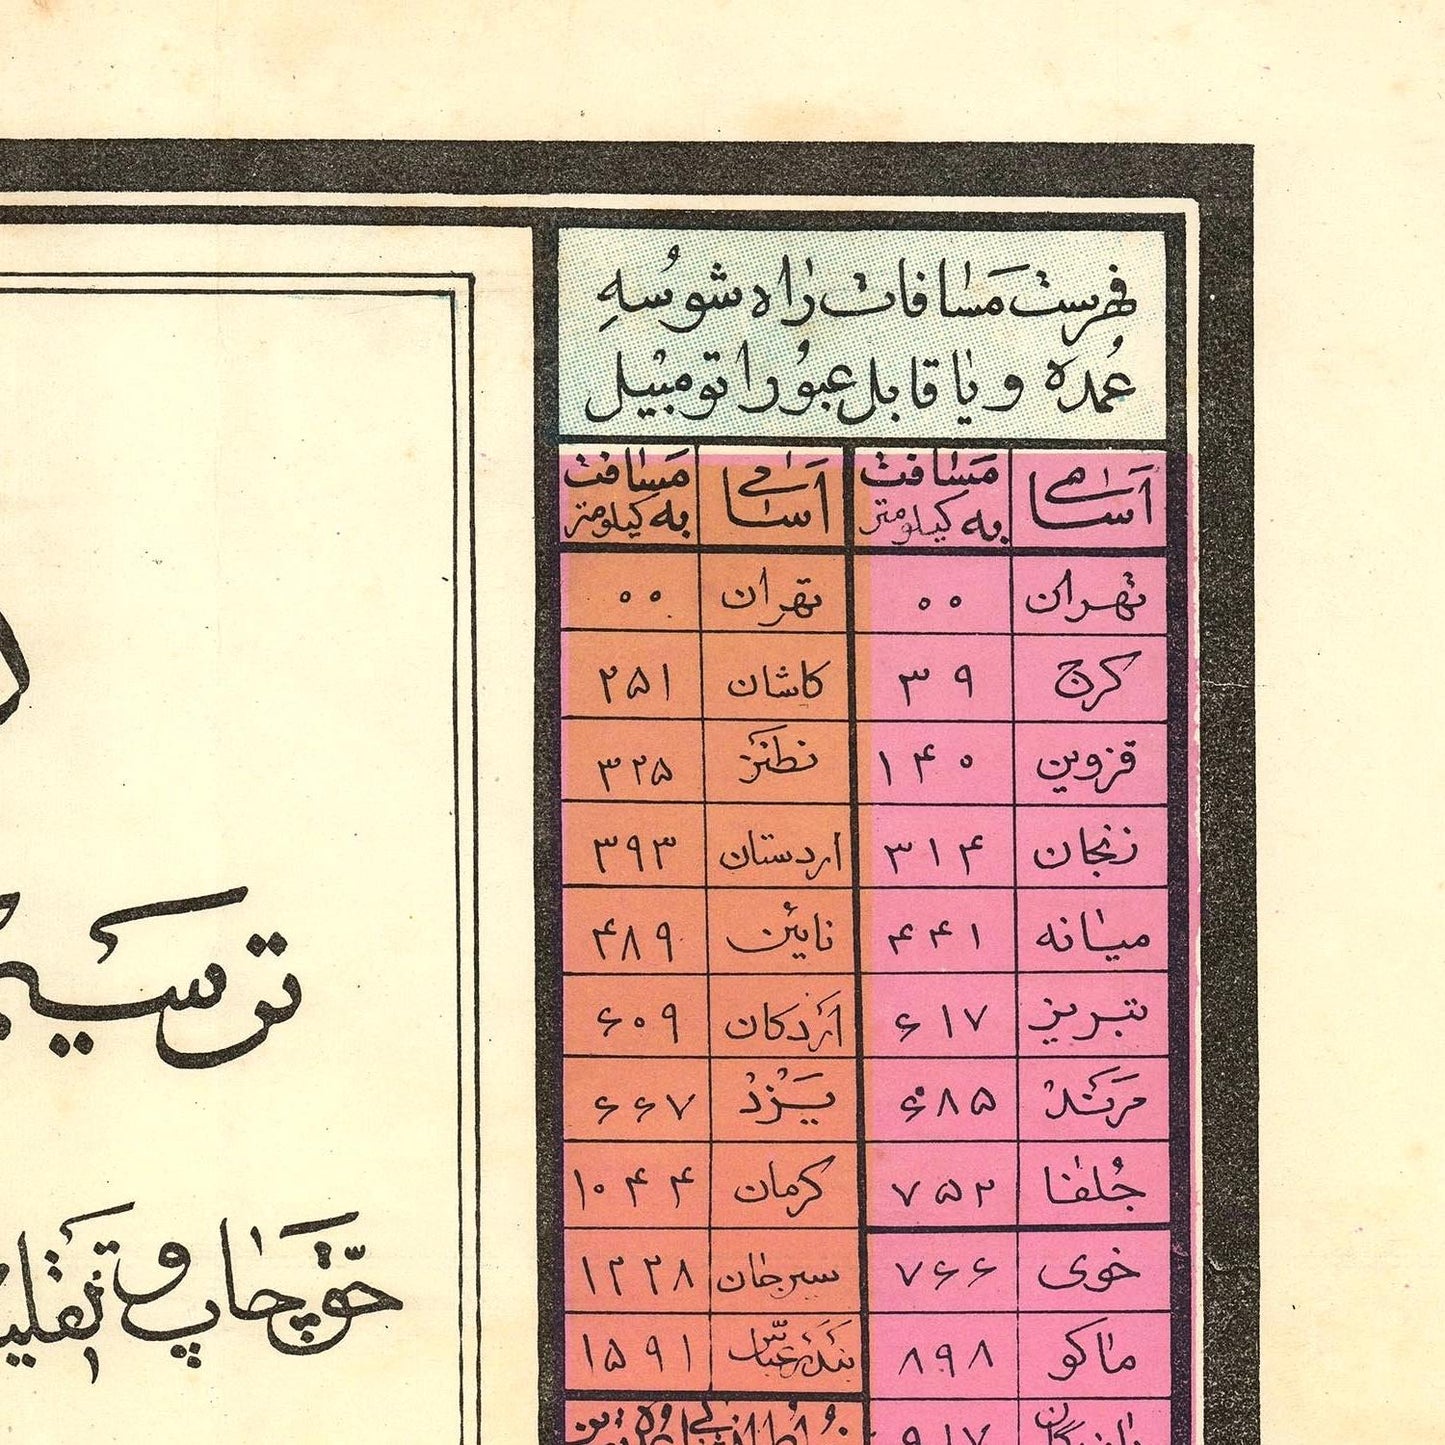 فهرست مسافات راه شوسه
عمده و یا قابل عبور اتومبیل
اسامی مسافت به کیلومتر اسامی مسافت به کیلومتر
تهران ۰۰ تهران ۰۰
کرج ۳۹ کاشان ۲۵۱
قزوین ۱۴۰ نطنز ۳۲۵
زنجان ۳۱۴ اردستان ۳۹۳
میانه ۴۴۱ نایئن ۴۸۹
تبریز ۶۱۷ اردکان ۶۰۹
مرند ۶۸۵ یزد ۶۶۷
جلفا ۷۵۲ کرمان ۱۰۴۴
خوی ۷۶۶ سیرجان ۱۲۲۸
ماکو ۸۹۸ بندرعباس ۱۵۹۱
۹۱۷
ترسیم
حق چاپ و تقلید